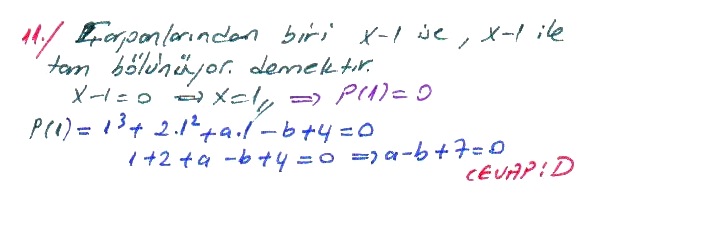 11./ Çarpanlarından biri x-1 ise, x-1 ile
tam bölünüyor. demektir.
x-1=0 ⇒ x=1,, ⇒ P(1)=0
P(1)= 1³+ 2.1²+a.1 -b+4=0
1+2+a -b+4=0 ⇒ a-b+7=0
CEVAP: D